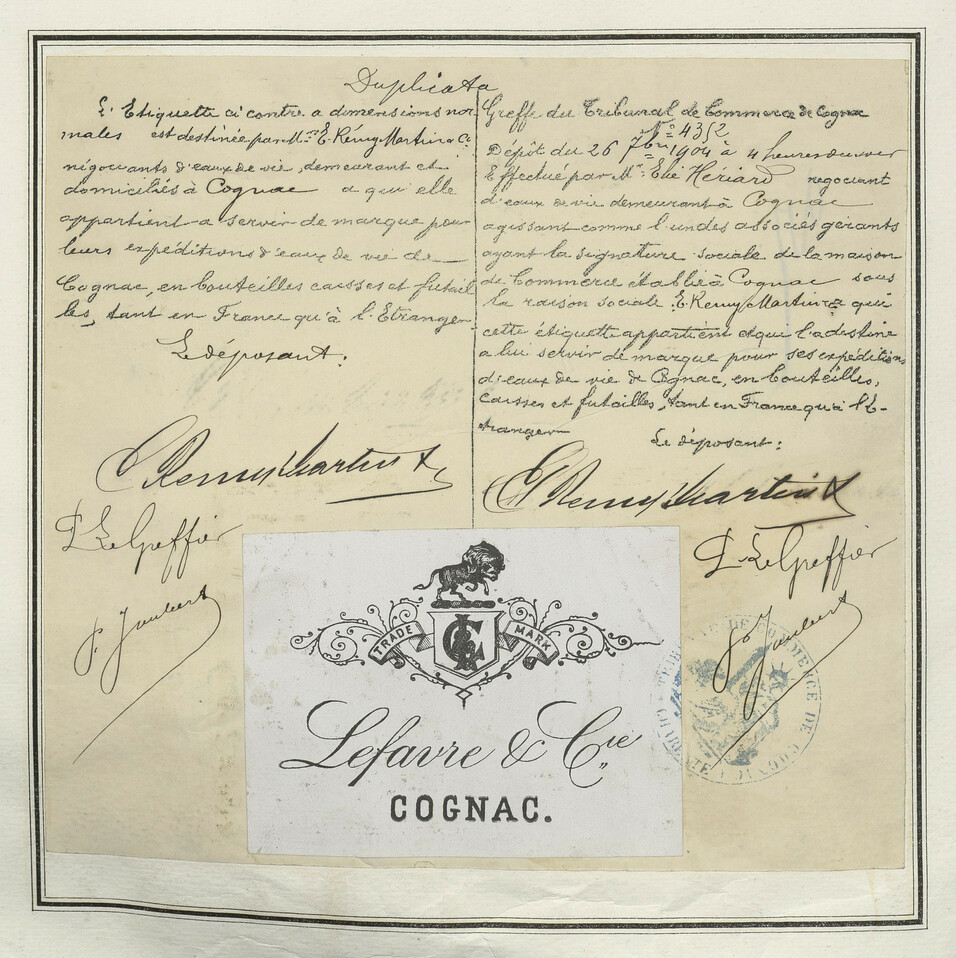 Duplicata
L'Etiquette ci contre a dimensions nor
males est destinée par Mrs E. Rémy Martin & Co
négociants d'eaux de vie, demeurant et
domiciliés à Cognac a qui elle
appartient a servir de marque pour
leurs expéditions d'eaux de vie de
Cognac, en bouteilles caisses et futail
les, tant en France qu'à l'Etranger
Le déposant:
E. Remy Martin &
P. Le Greffier
P. Joubert
Greffe du Tribunal de Commerce de Cognac
No 4352
Dépôt du 26 7bre 1904 à 4 heures du soir
Effectué par Mr Elie Hériard négociant
d'eaux de vie demeurant à Cognac
agissant comme l'un des associés gérants
ayant la signature sociale de la maison
de Commerce établie à Cognac sous
la raison sociale E. Remy Martin & Co qui
cette étiquette appartient et qui l'a destine
a lui servir de marque pour ses expéditions
d'eaux de vie de Cognac, en bouteilles,
caisses et futailles, tant en France qu'à l'E-
tranger
Le déposant:
E. Remy Martin &
P. Le Greffier
P. Joubert
TRADE MARK
Lefavre & Cie
COGNAC.
COMMERCE DE COGNAC